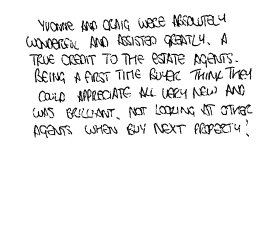 YVONNE AND CRAIG WERE ABSOLUTELY
WONDERFUL AND ASSISTED GREATLY. A
TRUE CREDIT TO THE ESTATE AGENTS.
BEING A FIRST TIME BUYER THINK THEY
COULD APPRECIATE ALL VERY NEW AND
WAS BRILLIANT. NOT LOOKING AT OTHER
AGENTS WHEN BUY NEXT PROPERTY!